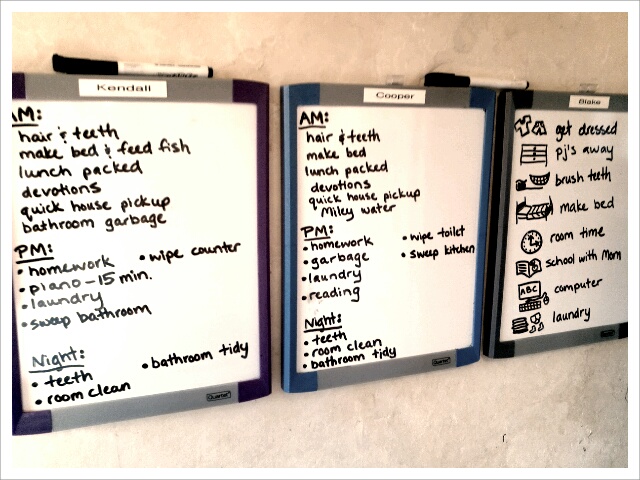 Kendall
AM:
hair & teeth
make bed & feed fish
lunch packed
devotions
quick house pickup
bathroom garbage
PM:
• homework
• wipe counter
• piano - 15 min.
• laundry
• sweep bathroom
Night:
• teeth
• bathroom tidy
• room clean
Quartet
Cooper
AM:
hair & teeth
make bed
lunch packed
devotions
quick house pickup
Miley water
PM:
• homework
• wipe toilet
• garbage
• sweep kitchen
• laundry
• reading
Night:
• teeth
• room clean
• bathroom tidy
Quartet
Blake
get dressed
pj's away
brush teeth
make bed
room time
school with Mom
ABC
computer
laundry